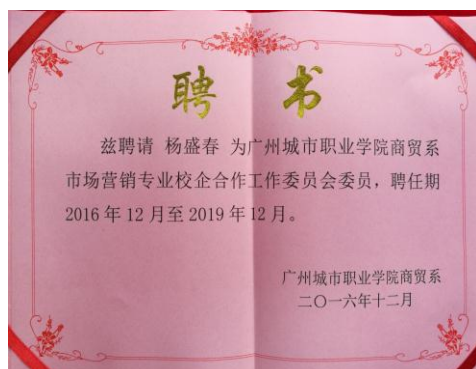 聘 书
兹聘请 杨盛春 为广州城市职业学院商贸系
市场营销专业校企合作工作委员会委员，聘任期
2016 年 12 月至 2019 年 12 月。
广州城市职业学院商贸系
二〇一六年十二月